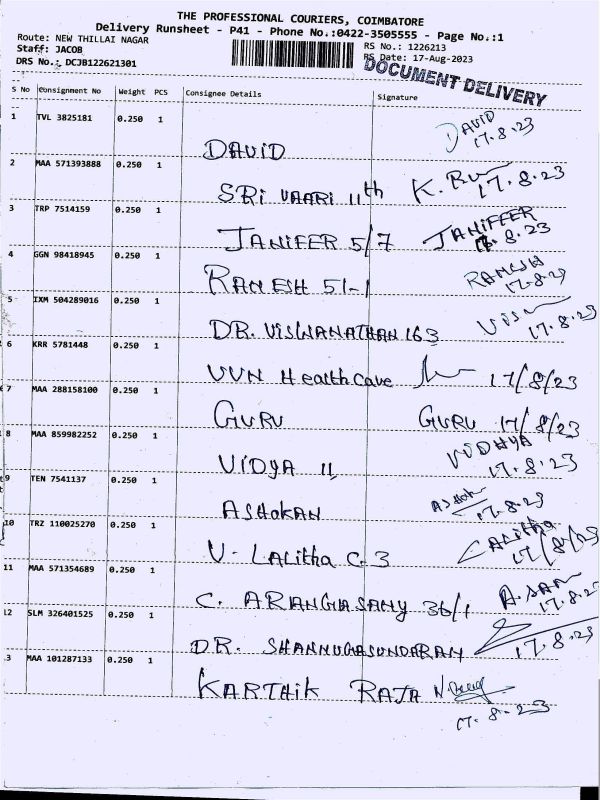 THE PROFESSIONAL COURIERS, COIMBATORE
Delivery Runsheet - P41 - Phone No.:0422-3505555 - Page No.:1
Route: NEW THILLAI NAGAR
Staff: JACOB
DRS No.: DCJB122621301
RS No.: 1226213
RS Date: 17-Aug-2023
DOCUMENT DELIVERY
S No Consignment No Weight PCS Consignee Details Signature
1 TVL 3825181 0.250 1 DAVID DAVID 17.8.23
2 MAA 571393888 0.250 1 SRi VAARi 11th K. 17.8.23
3 TRP 7514159 0.250 1 JANIFER 5/7 JANIFEER 17.8.23
4 GGN 98418945 0.250 1 RAMESH 51-1 RAMESH 17.8.23
5 IXM 504289016 0.250 1 DR. VISWANATHAN 163 17.8.23
6 KRR 5781448 0.250 1 VVN Health Cave 17/8/23
7 MAA 288158100 0.250 1 GURU GURU 17/8/23
8 MAA 859982252 0.250 1 VIDYA 11 VIDHYA 17.8.23
9 TEN 7541137 0.250 1 ASHOKAN Ashok 17.8.23
10 TRZ 110025270 0.250 1 V. LAlitha C-3 LAlitha 17/8/23
11 MAA 571354689 0.250 1 C. ARANGASAMY 36/1 17.8.23
12 SLM 326401525 0.250 1 DR. SHANNUGASUNDARAM 17.8.23
3 MAA 101287133 0.250 1 KARTHIK RAJA 17.8.23